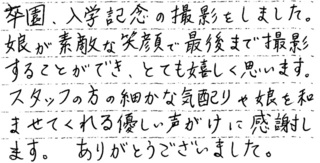 卒園、入学記念の撮影をしました。
娘が素敵な笑顔で最後まで撮影
することができ、とても嬉しく思います。
スタッフの方の細かな気配りや娘を和
ませてくれる優しい声がけに感謝し
ます。 ありがとうございました。